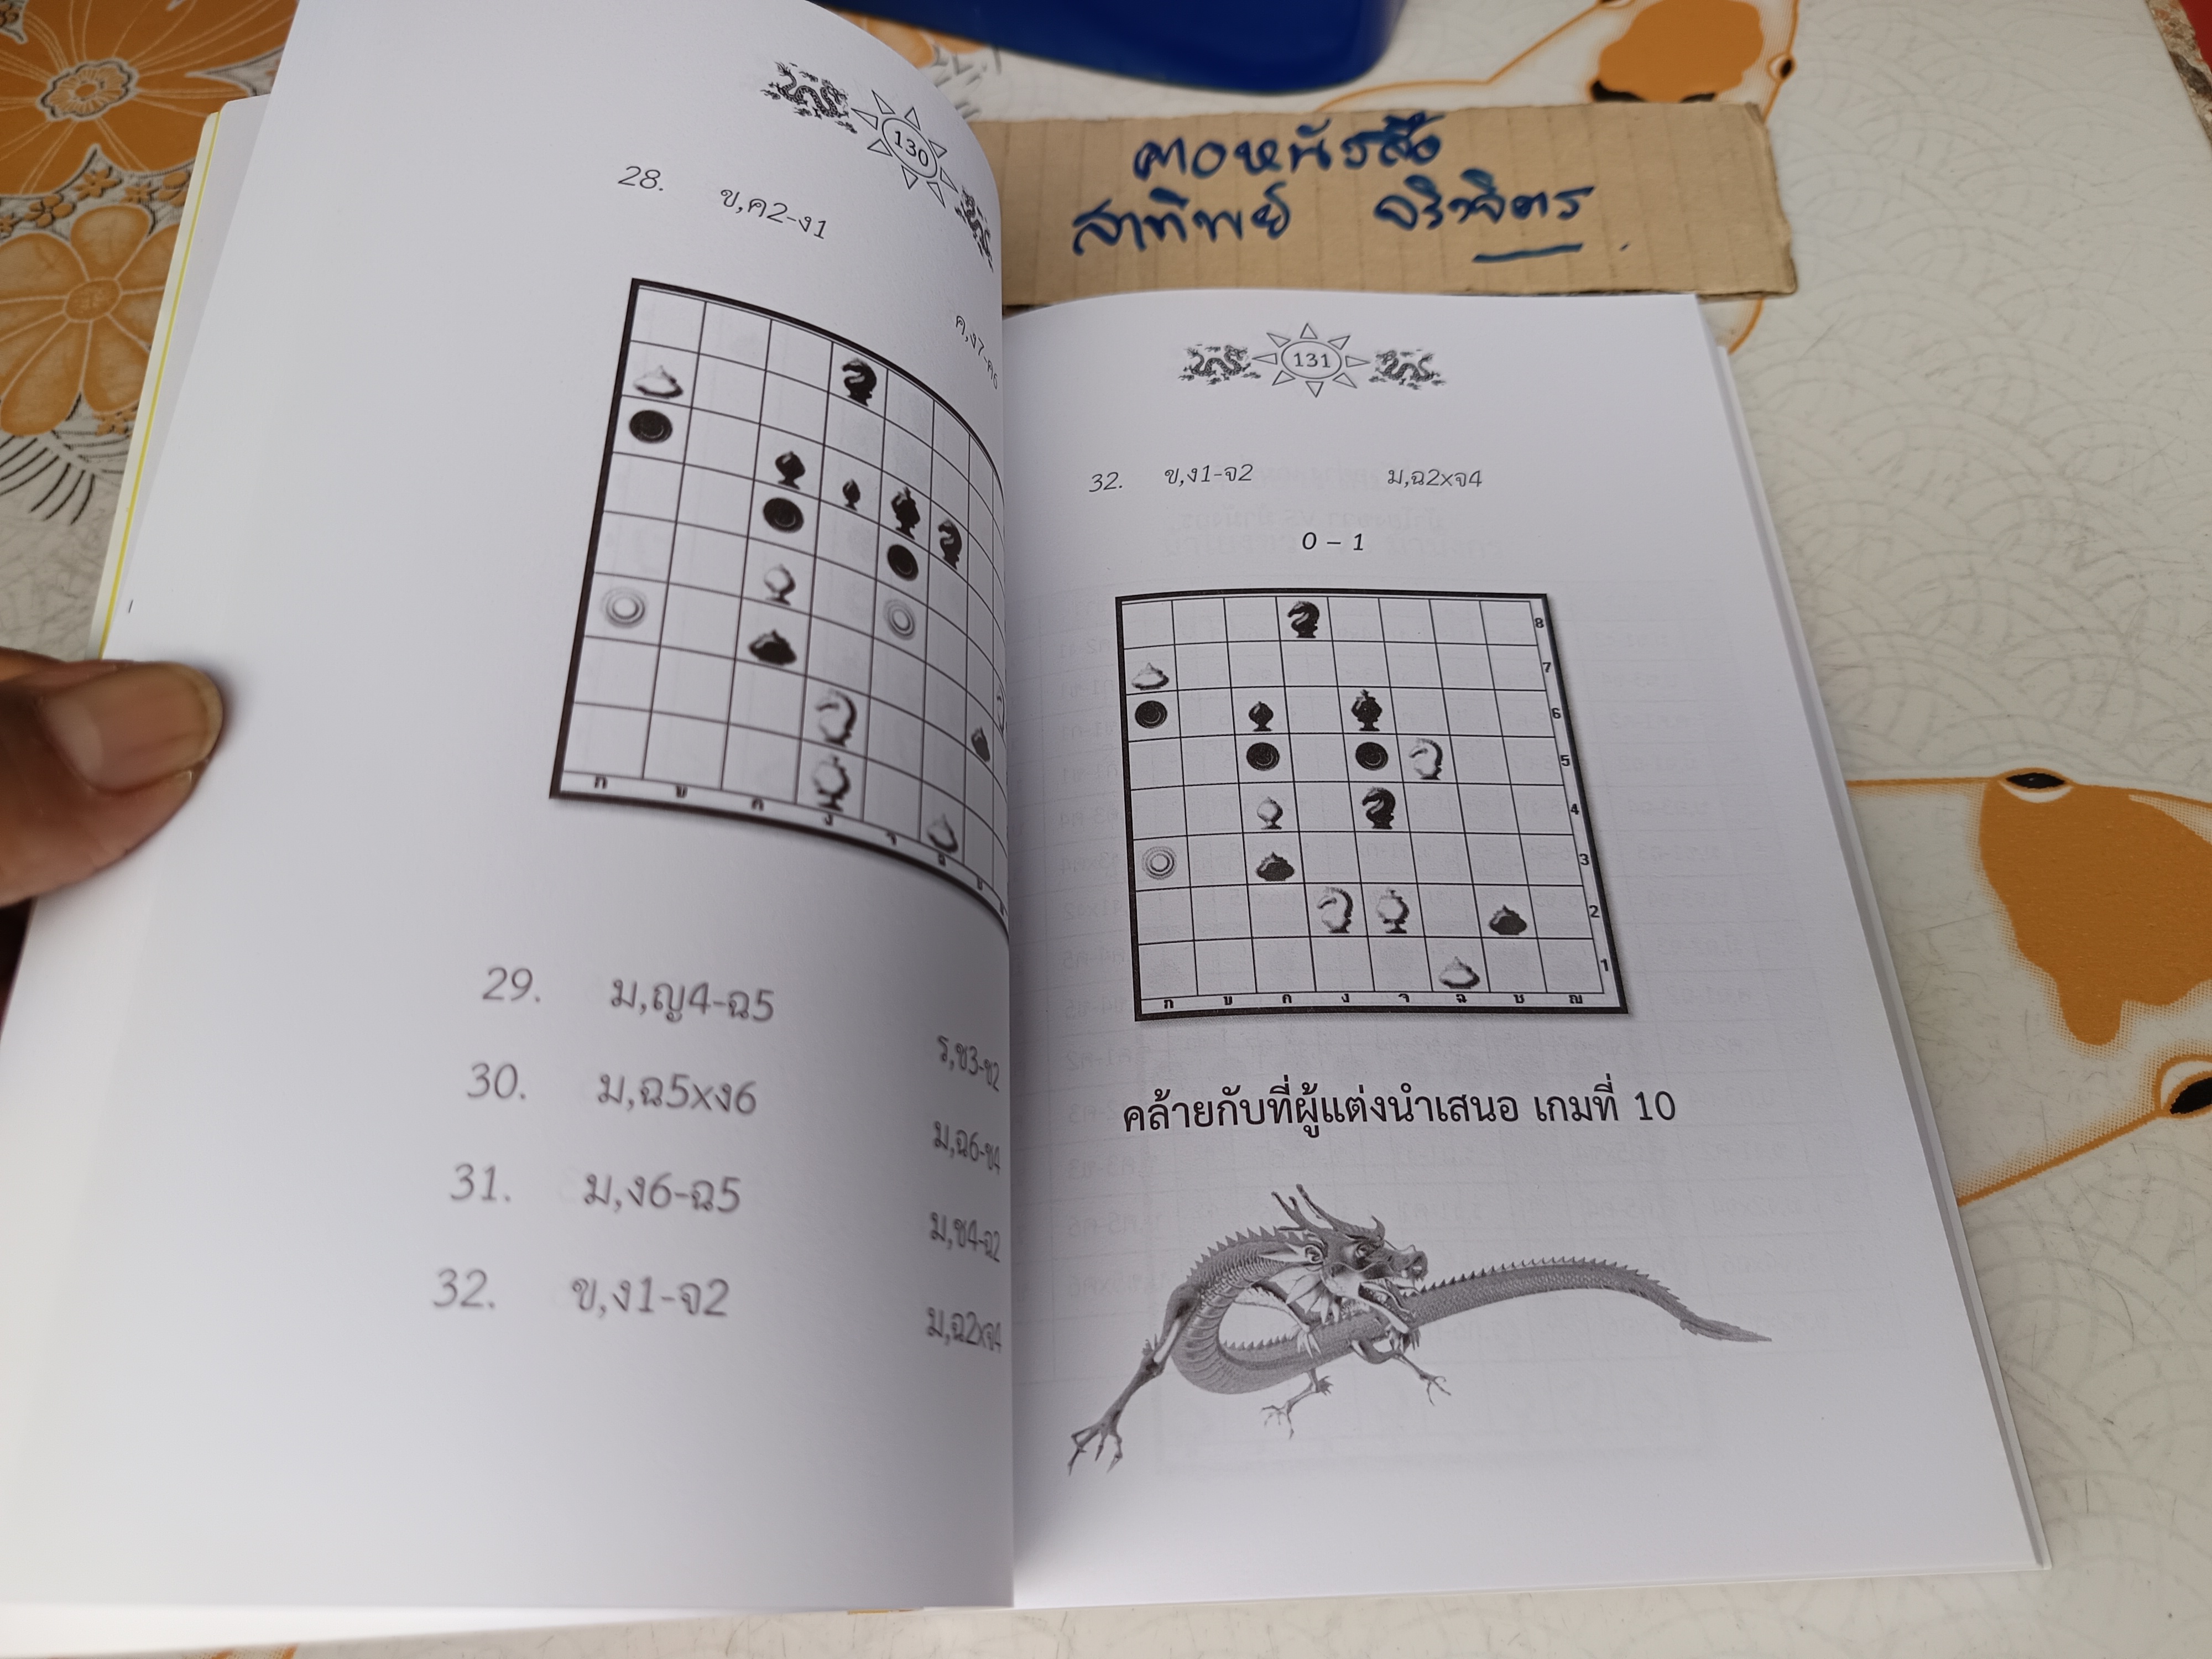 130
28. ข,ค2-ง1
ค,ง7-ค6
ก ข ค ง จ ฉ ช
29. ม,ญ4-ฉ5
ร,ช3-ช2
30. ม,ฉ5xง6
ม,ฉ6-ช4
31. ม,ง6-ฉ5
ม,ช4-ฉ2
32. ข,ง1-จ2
ม,ฉ2xจ4
สาทิพย์
131
32. ข,ง1-จ2 ม,ฉ2xจ4
0 – 1
8
7
6
5
4
3
2
1
ก ข ค ง จ ฉ ช ญ
คล้ายกับที่ผู้แต่งนำเสนอ เกมที่ 10